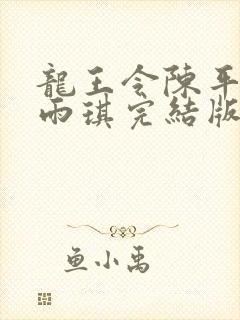 龍王令陳平
雨琪完結版
鱼小禹